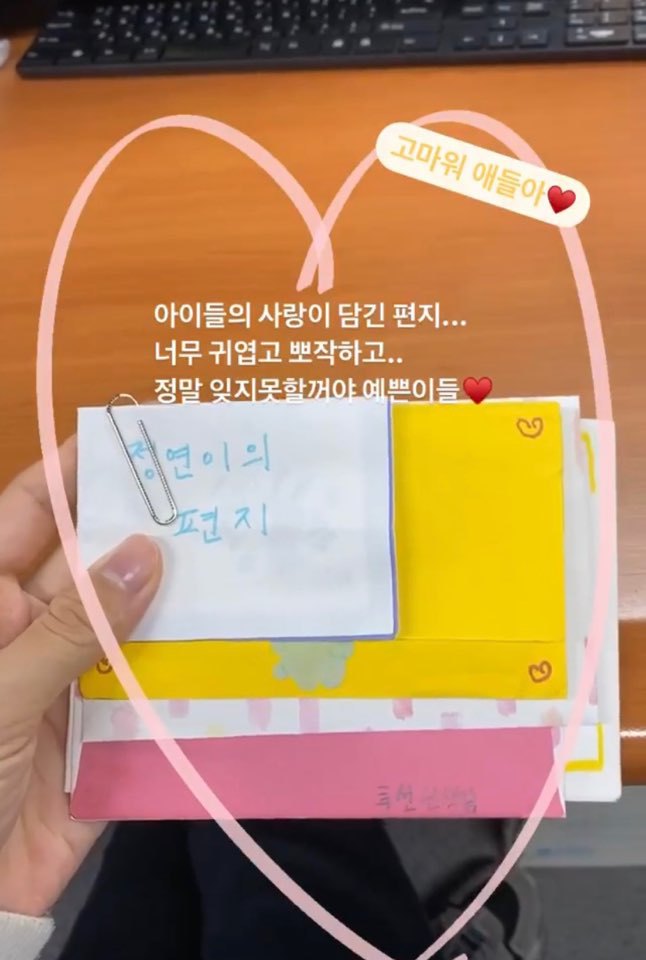 고마워 애들아
아이들의 사랑이 담긴 편지...
너무 귀엽고 뽀작하고..
정말 잊지못할꺼야 예쁜이들
정연이의
편지